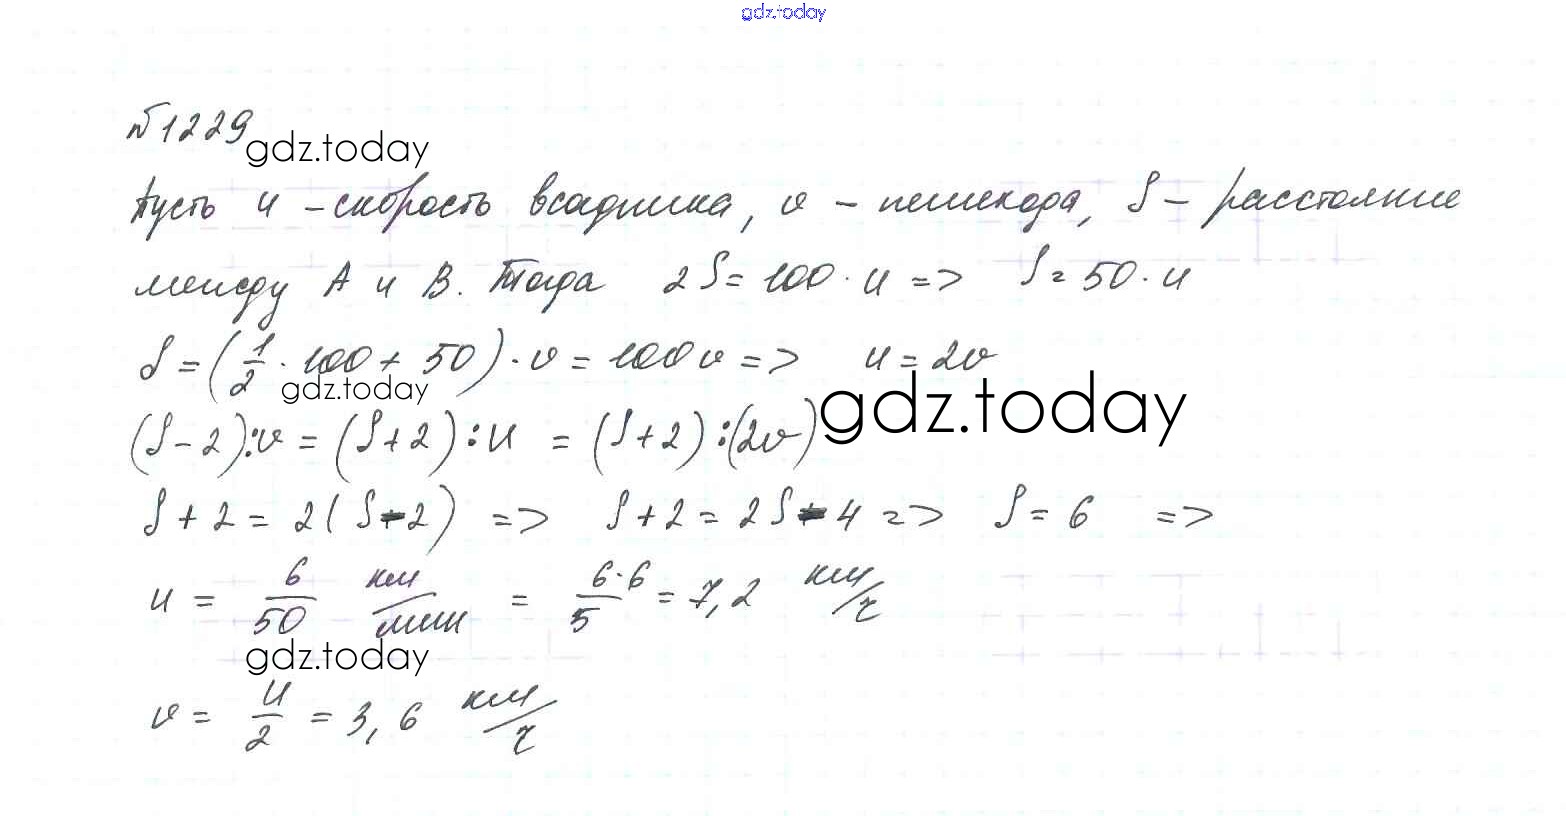 gdz.today
№1229
gdz.today
Пусть u - скорость всадника, v - пешехода, S - расстояние
между A и B. Тогда 2S = 100 · u => S = 50 · u
S = (1/2 · 100 + 50) · v = 100v => u = 2v
gdz.today
gdz.today
(S - 2) : v = (S + 2) : u = (S + 2) : (2v)
S + 2 = 2(S - 2) => S + 2 = 2S - 4 => S = 6 =>
u = 6/50 км/мин = 6·6/5 = 7,2 км/ч
gdz.today
v = u/2 = 3,6 км/ч